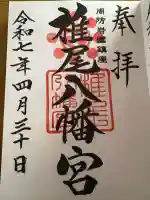 奉拝
周防岩国鎮座
椎尾八幡宮
令和七年四月三十日